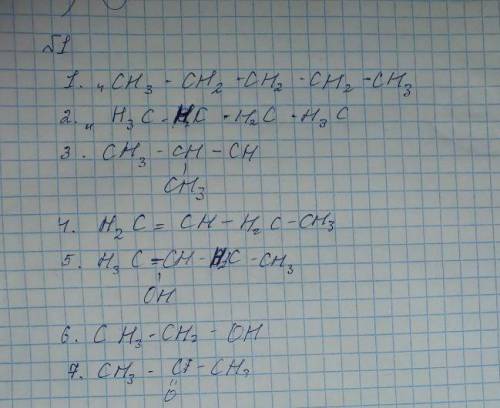 №1
1. н CH3 - CH2 - CH2 - CH2 - CH3
2. н H3C - H2C - H2C - H3C
3. CH3 - CH - CH
CH3
4. H2C = CH - H2C - CH3
5. H3C = CH - H2C - CH3
OH
6. CH3 - CH2 - OH
7. CH3 - C - CH3
O